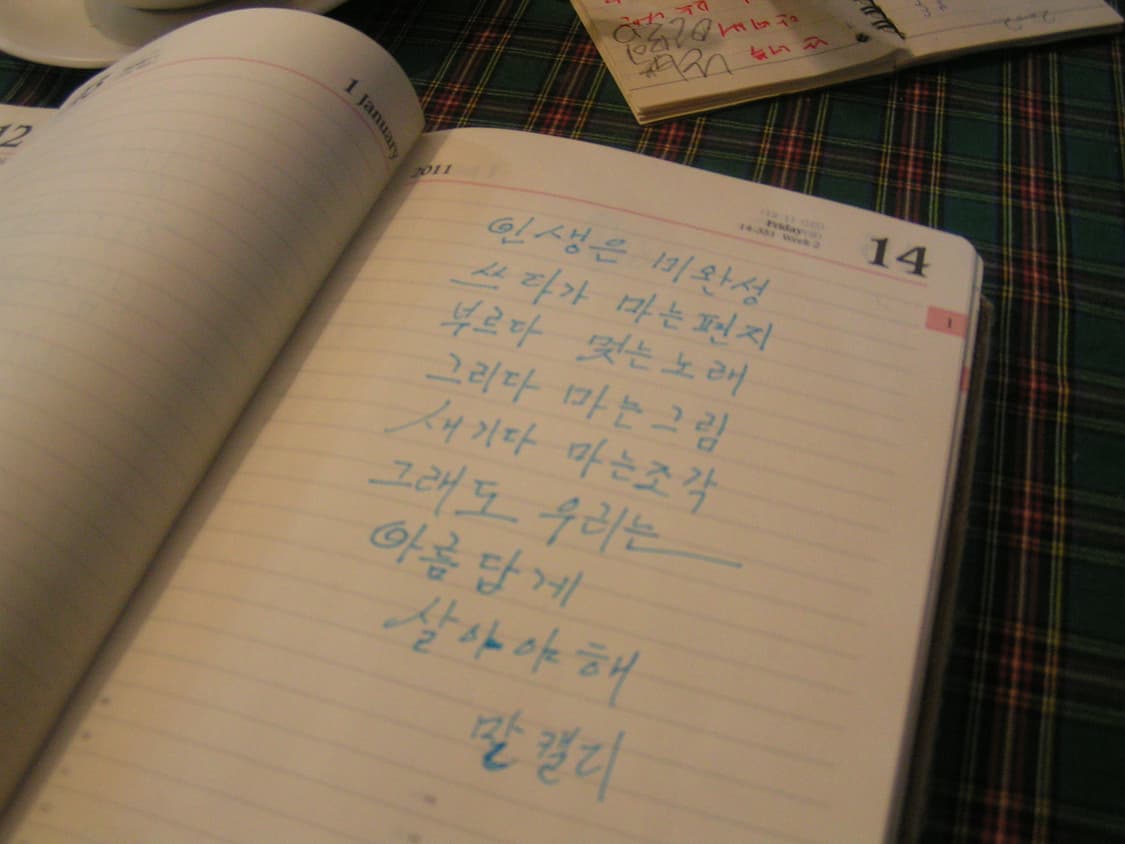 12
1 January
2011
Friday
14-351 Week 2
14
1
인생은 미완성
쓰다가 마는편지
부르다 멎는노래
그리다 마는그림
새기다 마는조각
그래도 우리는
아름답게
살아야해
말캘리